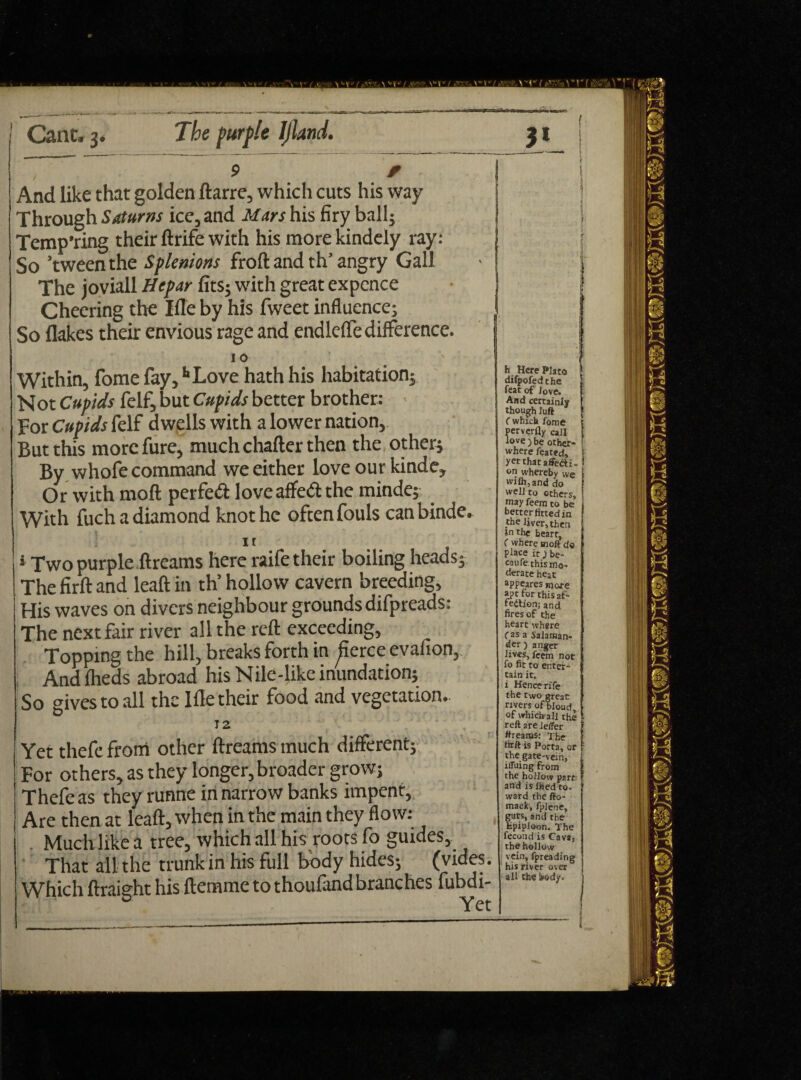 Cant. 3. The purple Iſland. 31
9
And like that golden ſtarre, which cuts his way
Through Saturns ice, and Mars his firy ball;
Temp'ring their ſtrife with his more kindely ray:
So 'tween the Splenions froſt and th' angry Gall
The joviall Hepar ſits; with great expence
Cheering the Iſle by his ſweet influence;
So ſlakes their envious rage and endleſſe difference.
10
Within, ſome ſay, h Love hath his habitation;
Not Cupids ſelf, but Cupids better brother:
For Cupids ſelf dwells with a lower nation,
But this more ſure, much chaſter then the other;
By whoſe command we either love our kinde,
Or with moſt perfect love affect the minde;
With ſuch a diamond knot he often ſouls can binde.
11
i Two purple ſtreams here raiſe their boiling heads;
The firſt and leaſt in th' hollow cavern breeding,
His waves on divers neighbour grounds diſpreads:
The next fair river all the reſt exceeding,
Topping the hill, breaks forth in fierce evaſion,
And ſheds abroad his Nile-like inundation;
So gives to all the Iſle their food and vegetation.
12
Yet theſe from other ſtreams much different;
For others, as they longer, broader grow;
Theſe as they runne in narrow banks impent,
Are then at leaſt, when in the main they flow:
Much like a tree, which all his roots ſo guides,
That all the trunk in his full body hides; (vides.
Which ſtraight his ſtemme to thouſand branches ſubdi-
Yet
h Here Plato
diſpoſed the
ſeat of love.
And certainly
though luſt
(which ſome
perverſly call
love) be other-
where ſeated,
yet that affecti-
on whereby we
wiſh, and do
well to others,
may ſeem to be
better fitted in
the liver, then
in the heart,
(where moſt do
place it) be-
cauſe this mo-
derate heat
appeares more
apt for this af-
fection; and
fires of the
heart where
(as a Salaman-
der) anger
lives, ſeem not
ſo fit to enter-
tain it.
i Hence riſe
the two great
rivers of bloud,
of which all the
reſt are leſſer
ſtreams: The
firſt is Porta, or
the gate-vein,
iſſuing from
the hollow part
and is ſhed to-
ward the ſto-
mack, ſplene,
guts, and the
Epiploon. The
ſecond is Cava,
the hollow
vein, ſpreading
his river over
all the body.